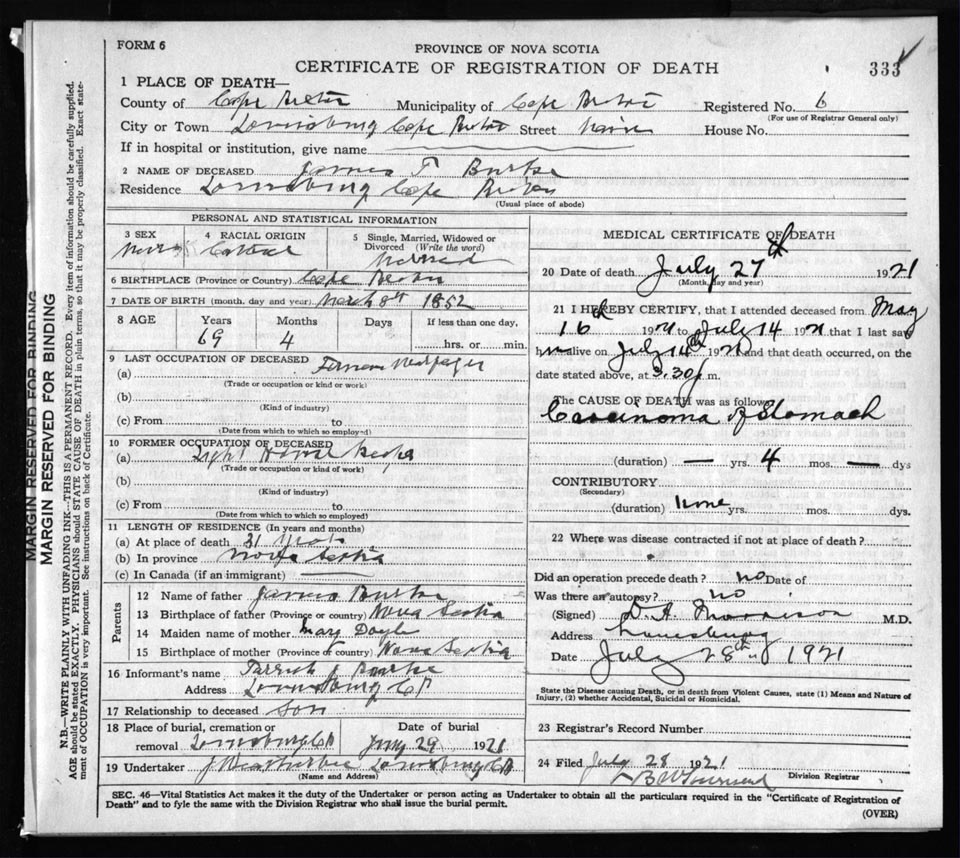 FORM 6
PROVINCE OF NOVA SCOTIA
CERTIFICATE OF REGISTRATION OF DEATH
333
1 PLACE OF DEATH—
County of Cape Breton Municipality of Cape Breton Registered No. 6
(For use of Registrar General only)
City or Town Louisburg Cape Breton Street Main House No.
If in hospital or institution, give name
2 NAME OF DECEASED James T Burke
Residence Louisburg Cape Breton
(Usual place of abode)
PERSONAL AND STATISTICAL INFORMATION
3 SEX 4 RACIAL ORIGIN 5 Single, Married, Widowed or Divorced (Write the word)
Married
6 BIRTHPLACE (Province or Country) Cape Breton
7 DATE OF BIRTH (month, day and year) March 8th 1852
8 AGE Years Months Days If less than one day,
69 4 hrs. or min.
9 LAST OCCUPATION OF DECEASED
(a)
(Trade or occupation or kind or work)
(b)
(Kind of industry)
(c) From to
(Date from which to which so employed)
10 FORMER OCCUPATION OF DECEASED
(a) Light House Keeper
(Trade or occupation or kind of work)
(b)
(Kind of industry)
(c) From to
(Date from which to which so employed)
11 LENGTH OF RESIDENCE (In years and months)
(a) At place of death 31 years
(b) In province Nova Scotia
(c) In Canada (if an immigrant)
Parents
12 Name of father James Burke
13 Birthplace of father (Province or country) Nova Scotia
14 Maiden name of mother Mary Doyle
15 Birthplace of mother (Province or country) Nova Scotia
16 Informant's name Burke
Address Louisburg CB
17 Relationship to deceased Son
18 Place of burial, cremation or removal Louisburg CB
Date of burial July 29 1921
19 Undertaker Louisburg CB
(Name and Address)
MEDICAL CERTIFICATE OF DEATH
20 Date of death July 27th 1921
(Month, day and year)
21 I HEREBY CERTIFY, that I attended deceased from May
16th 1921 to July 14 1921 that I last saw
him alive on July 14th 1921 and that death occurred, on the
date stated above, at 3.30 m.
The CAUSE OF DEATH was as follows
Carcinoma of Stomach
(duration) — yrs. 4 mos. — dys
CONTRIBUTORY
(Secondary)
(duration) none yrs. mos. dys.
22 Where was disease contracted if not at place of death?
Did an operation precede death? no Date of
Was there an autopsy? no
(Signed) D. A. Morrison M.D.
Address Louisburg
Date July 28th 1921
State the Disease causing Death, or in death from Violent Causes, state (1) Means and Nature of
Injury, (2) whether Accidental, Suicidal or Homicidal.
23 Registrar's Record Number
24 Filed July 28 1921
Division Registrar
SEC. 46—Vital Statistics Act makes it the duty of the Undertaker or person acting as Undertaker to obtain all the particulars required in the "Certificate of Registration of
Death" and to fyle the same with the Division Registrar who shall issue the burial permit.
(OVER)
MARGIN RESERVED FOR BINDING
MARGIN RESERVED FOR BINDING
N.B.—WRITE PLAINLY WITH UNFADING INK—THIS IS A PERMANENT RECORD. Every item of information should be carefully supplied.
AGE should be stated EXACTLY. PHYSICIANS should STATE CAUSE OF DEATH in plain terms, so that it may be properly classified. Exact state-
ment of OCCUPATION is very important. See instructions on back of Certificate.